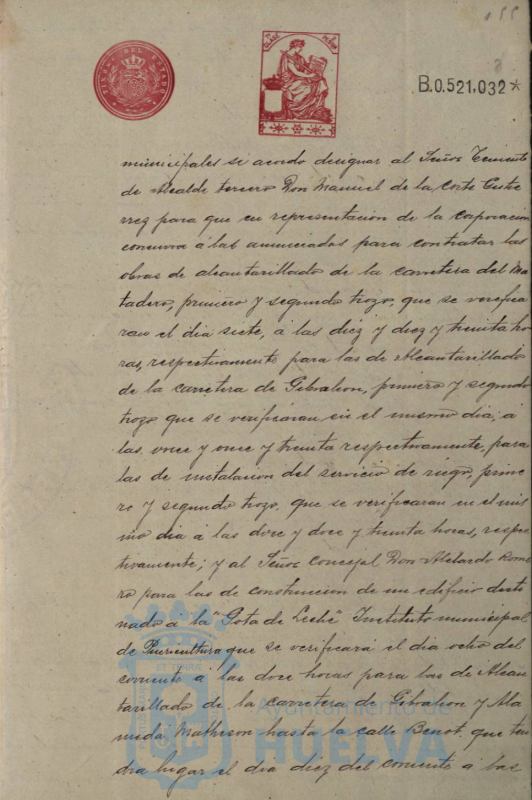 155
TIMBRE DEL ESTADO
B.0.521.032*
municipales se acordo designar al Señor Teniente
de Alcalde tercero Don Manuel de la Corte Gutie
rrez para que en representacion de la corporacion
concurra á las anunciadas para contratar las
obras de alcantarillado de la carretera del Ma
tadero, primero y segundo trozo, que se verifica
ran el dia siete, á las diez y diez y treinta ho
ras, respectivamente para las de Alcantarillado
de la carretera de Gibraleon, primero y segundo
trozo que se verificaran en el mismo dia, á
las once y once y treinta respectivamente, para
las de instalacion del servicio de riego, prime
ro y segundo trozo, que se verificaran en el mis
mo dia á las doce y doce y treinta horas, respec
tivamente; y al Señor Concejal Don Abelardo Rome
ro para las de construccion de un edificio desti
nado á la "Gota de Leche" Instituto municipal
de Puericultura que se verificará el dia ocho del
corriente á las doce horas para las de Alcan
tarillado de la carretera de Gibraleon y Ala
meda Matheson hasta la calle Benot, que ten
dra lugar el dia diez del corriente á las
Ayuntamiento de
HUELVA